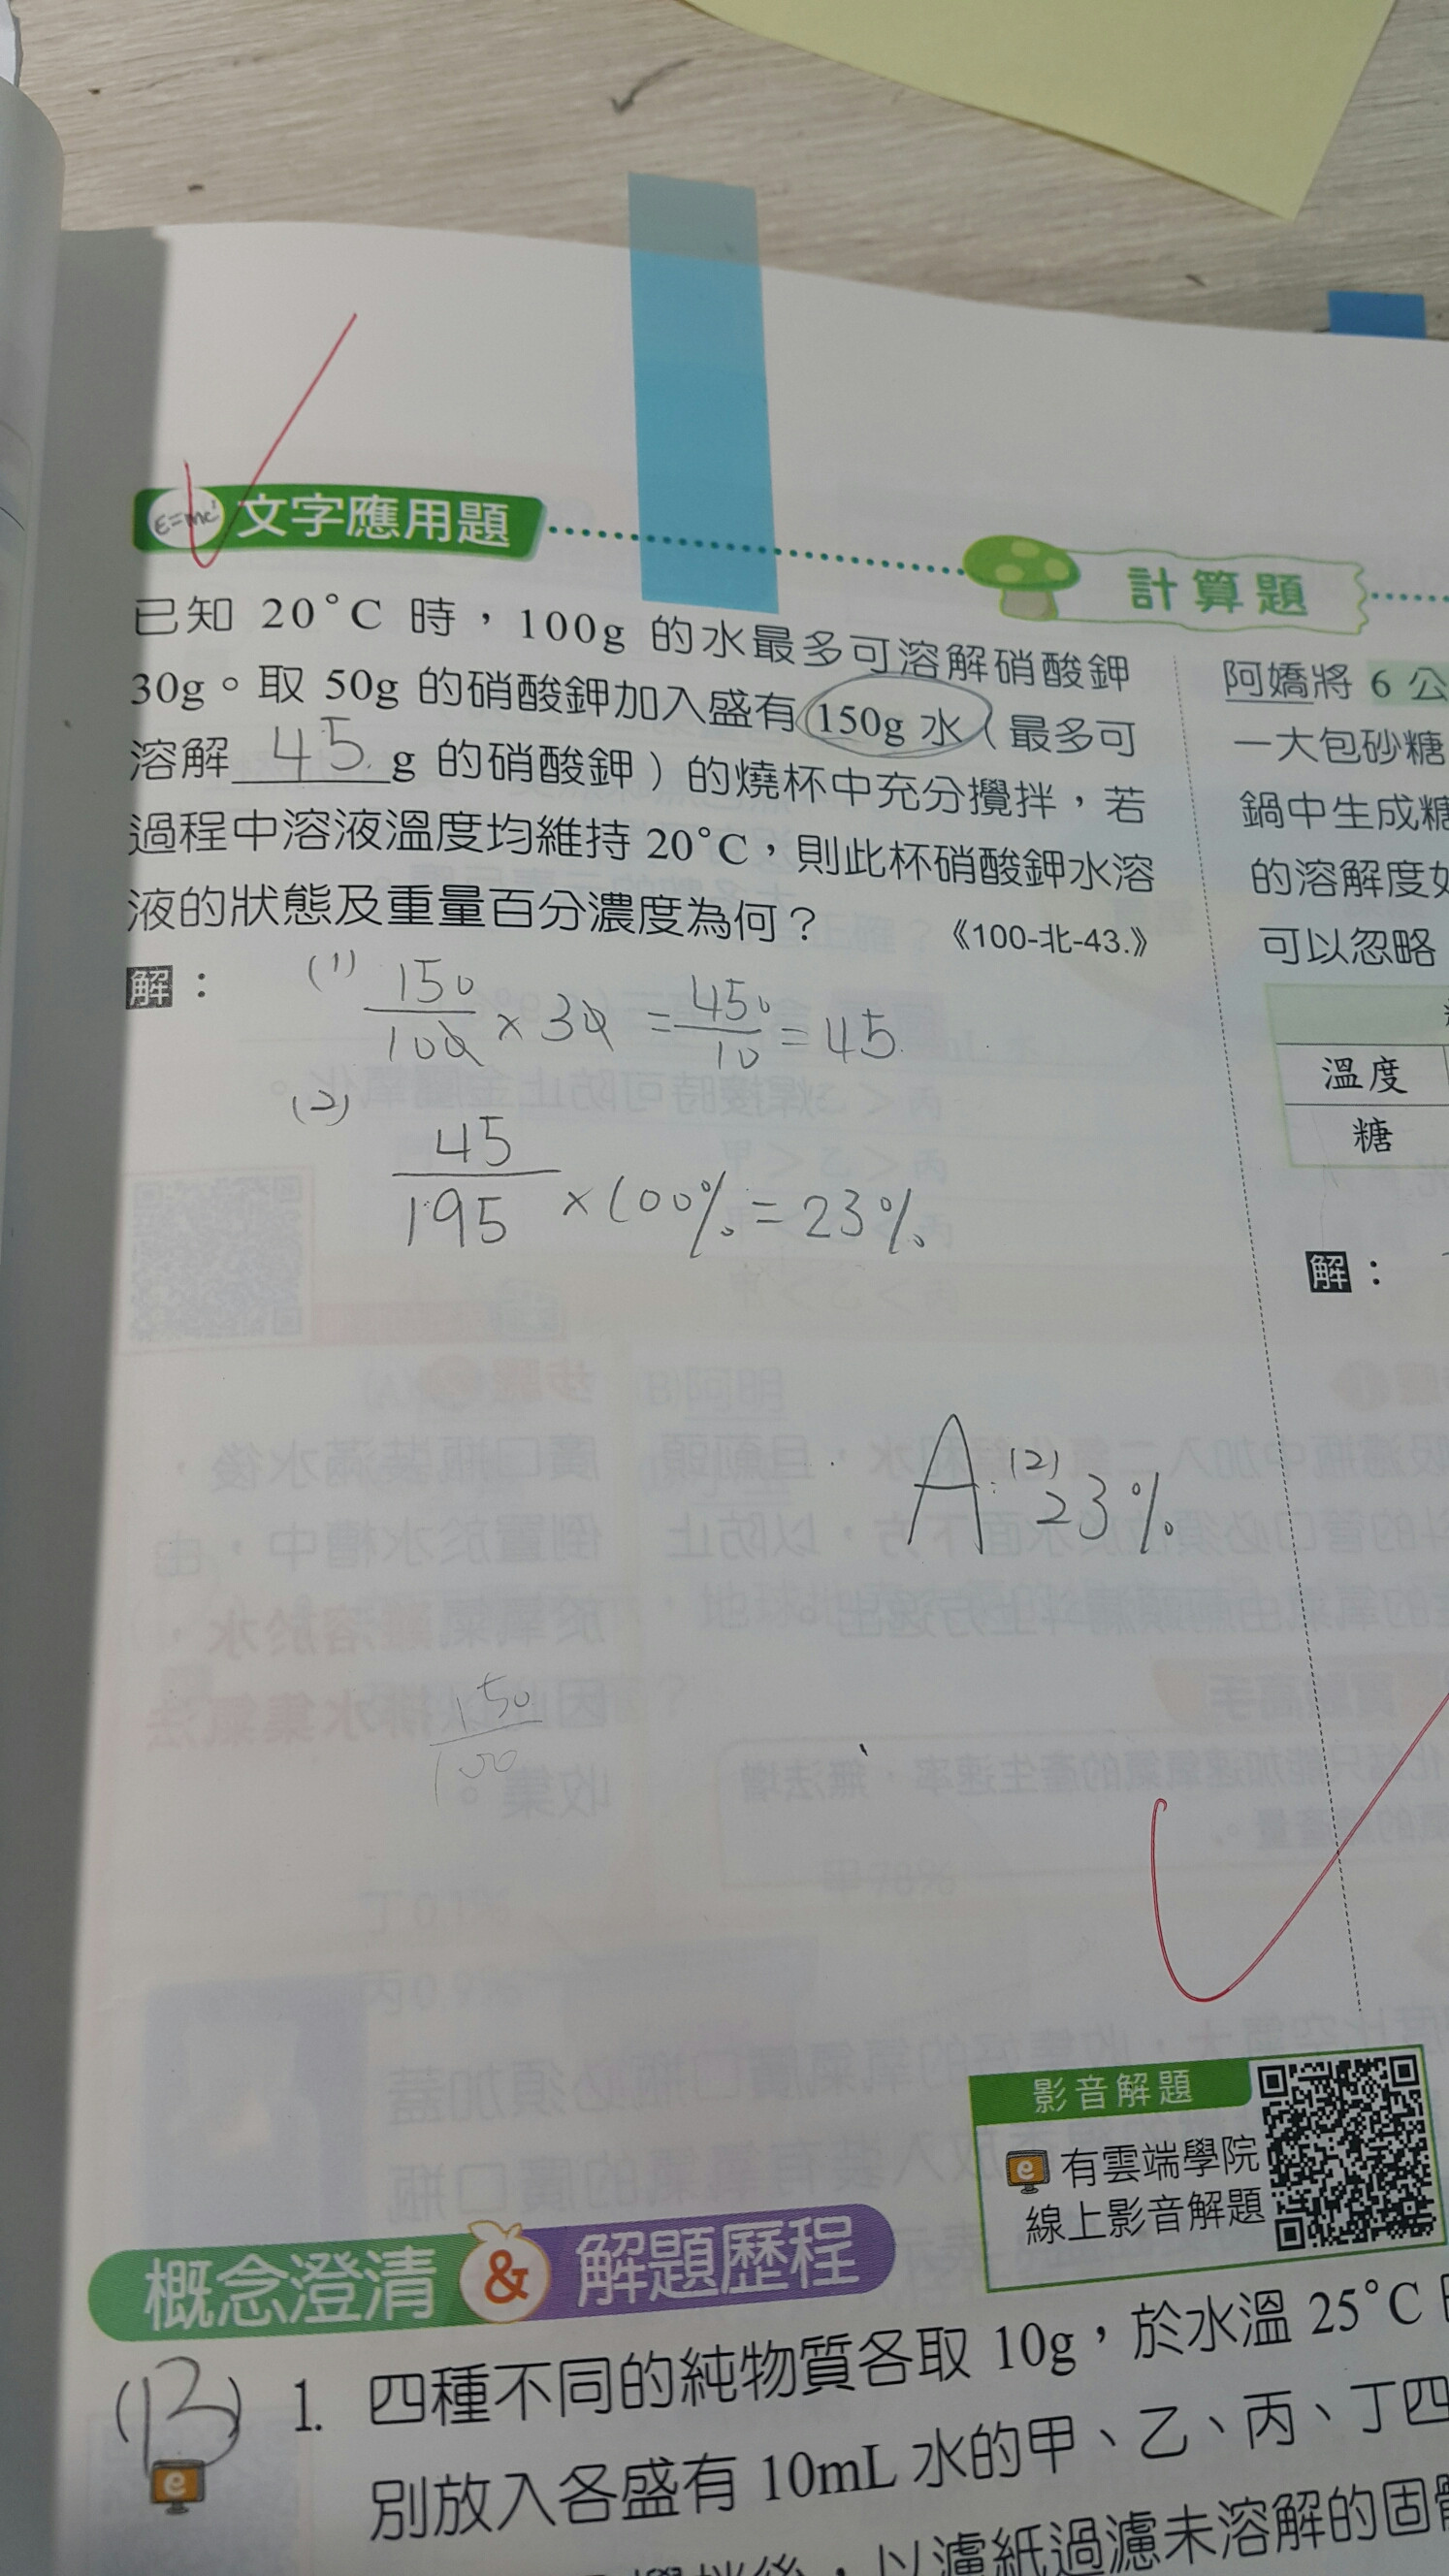 E=mc²
文字應用題
計算題
已知 20°C 時，100g 的水最多可溶解硝酸鉀
30g。取 50g 的硝酸鉀加入盛有 150g 水（最多可
溶解 45 g 的硝酸鉀）的燒杯中充分攪拌，若
過程中溶液溫度均維持 20°C，則此杯硝酸鉀水溶
液的狀態及重量百分濃度為何？
《100-北-43.》
解：
(1) 150/100 × 30 = 450/10 = 45
(2) 45/195 × 100% = 23%
A: (2) 23%
150/100
阿嬌將 6 公
一大包砂糖
鍋中生成糖
的溶解度如
可以忽略
溫度
糖
解：
影音解題
e 有雲端學院
線上影音解題
概念澄清 & 解題歷程
(B) 1. 四種不同的純物質各取 10g，於水溫 25°C
e 別放入各盛有 10mL 水的甲、乙、丙、丁四
攪拌後，以濾紙過濾未溶解的固